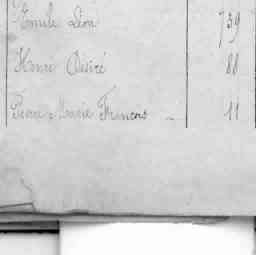 Emile Léon 759
Henri Désiré 88
Pierre Marie François 11